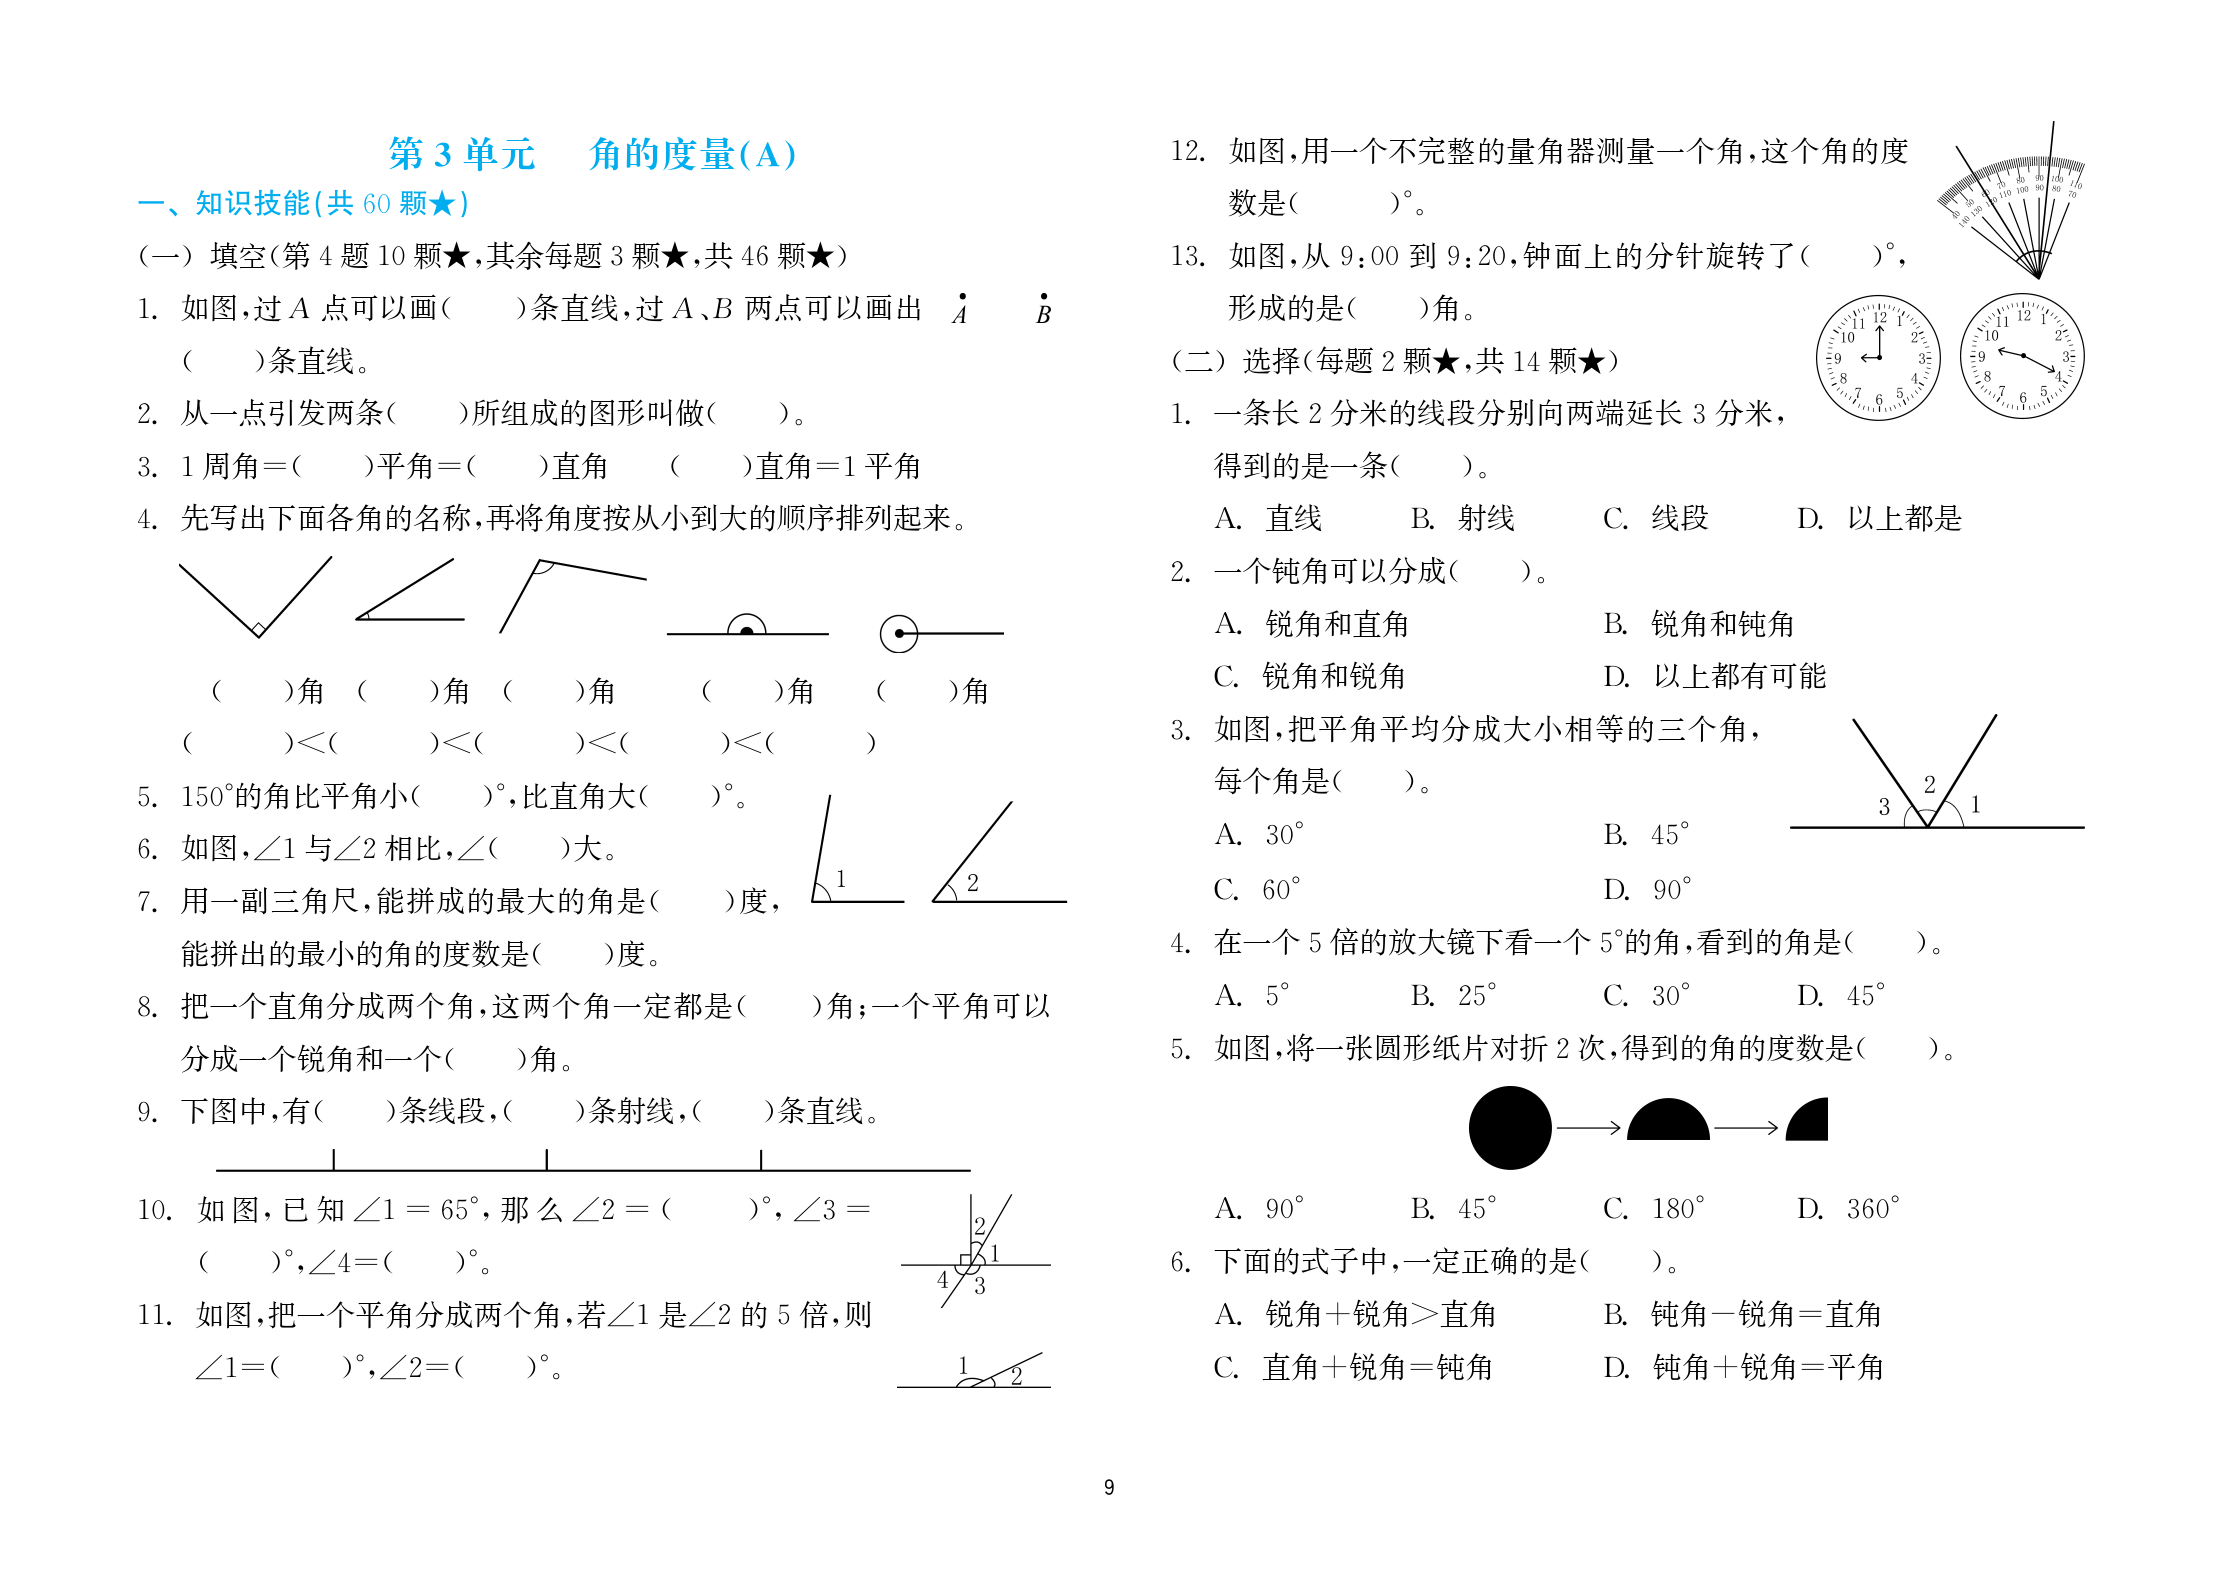 第 3 单元 角的度量(A)
一、知识技能(共 60 颗★)
(一) 填空(第 4 题 10 颗★,其余每题 3 颗★,共 46 颗★)
1. 如图,过 A 点可以画( )条直线,过 A、B 两点可以画出
( )条直线。
A B
2. 从一点引发两条( )所组成的图形叫做( )。
3. 1 周角=( )平角=( )直角 ( )直角=1 平角
4. 先写出下面各角的名称,再将角度按从小到大的顺序排列起来。
( )角 ( )角 ( )角 ( )角 ( )角
( )<( )<( )<( )<( )
5. 150°的角比平角小( )°,比直角大( )°。
6. 如图,∠1 与∠2 相比,∠( )大。
1 2
7. 用一副三角尺,能拼成的最大的角是( )度,
能拼出的最小的角的度数是( )度。
8. 把一个直角分成两个角,这两个角一定都是( )角;一个平角可以
分成一个锐角和一个( )角。
9. 下图中,有( )条线段,( )条射线,( )条直线。
10. 如图,已知∠1 = 65°,那么∠2 = ( )°,∠3 =
( )°,∠4=( )°。
2
1
4 3
11. 如图,把一个平角分成两个角,若∠1 是∠2 的 5 倍,则
∠1=( )°,∠2=( )°。
1 2
12. 如图,用一个不完整的量角器测量一个角,这个角的度
数是( )°。
40 50 70 80 90 100 110
140 130 110 100 90 80 70
13. 如图,从 9:00 到 9:20,钟面上的分针旋转了( )°,
形成的是( )角。
12 1 2 3 4 5 6 7 8 9 10 11
12 1 2 3 4 5 6 7 8 9 10 11
(二) 选择(每题 2 颗★,共 14 颗★)
1. 一条长 2 分米的线段分别向两端延长 3 分米,
得到的是一条( )。
A. 直线 B. 射线 C. 线段 D. 以上都是
2. 一个钝角可以分成( )。
A. 锐角和直角 B. 锐角和钝角
C. 锐角和锐角 D. 以上都有可能
3. 如图,把平角平均分成大小相等的三个角,
每个角是( )。
3 2 1
A. 30° B. 45°
C. 60° D. 90°
4. 在一个 5 倍的放大镜下看一个 5°的角,看到的角是( )。
A. 5° B. 25° C. 30° D. 45°
5. 如图,将一张圆形纸片对折 2 次,得到的角的度数是( )。
A. 90° B. 45° C. 180° D. 360°
6. 下面的式子中,一定正确的是( )。
A. 锐角+锐角>直角 B. 钝角-锐角=直角
C. 直角+锐角=钝角 D. 钝角+锐角=平角
9